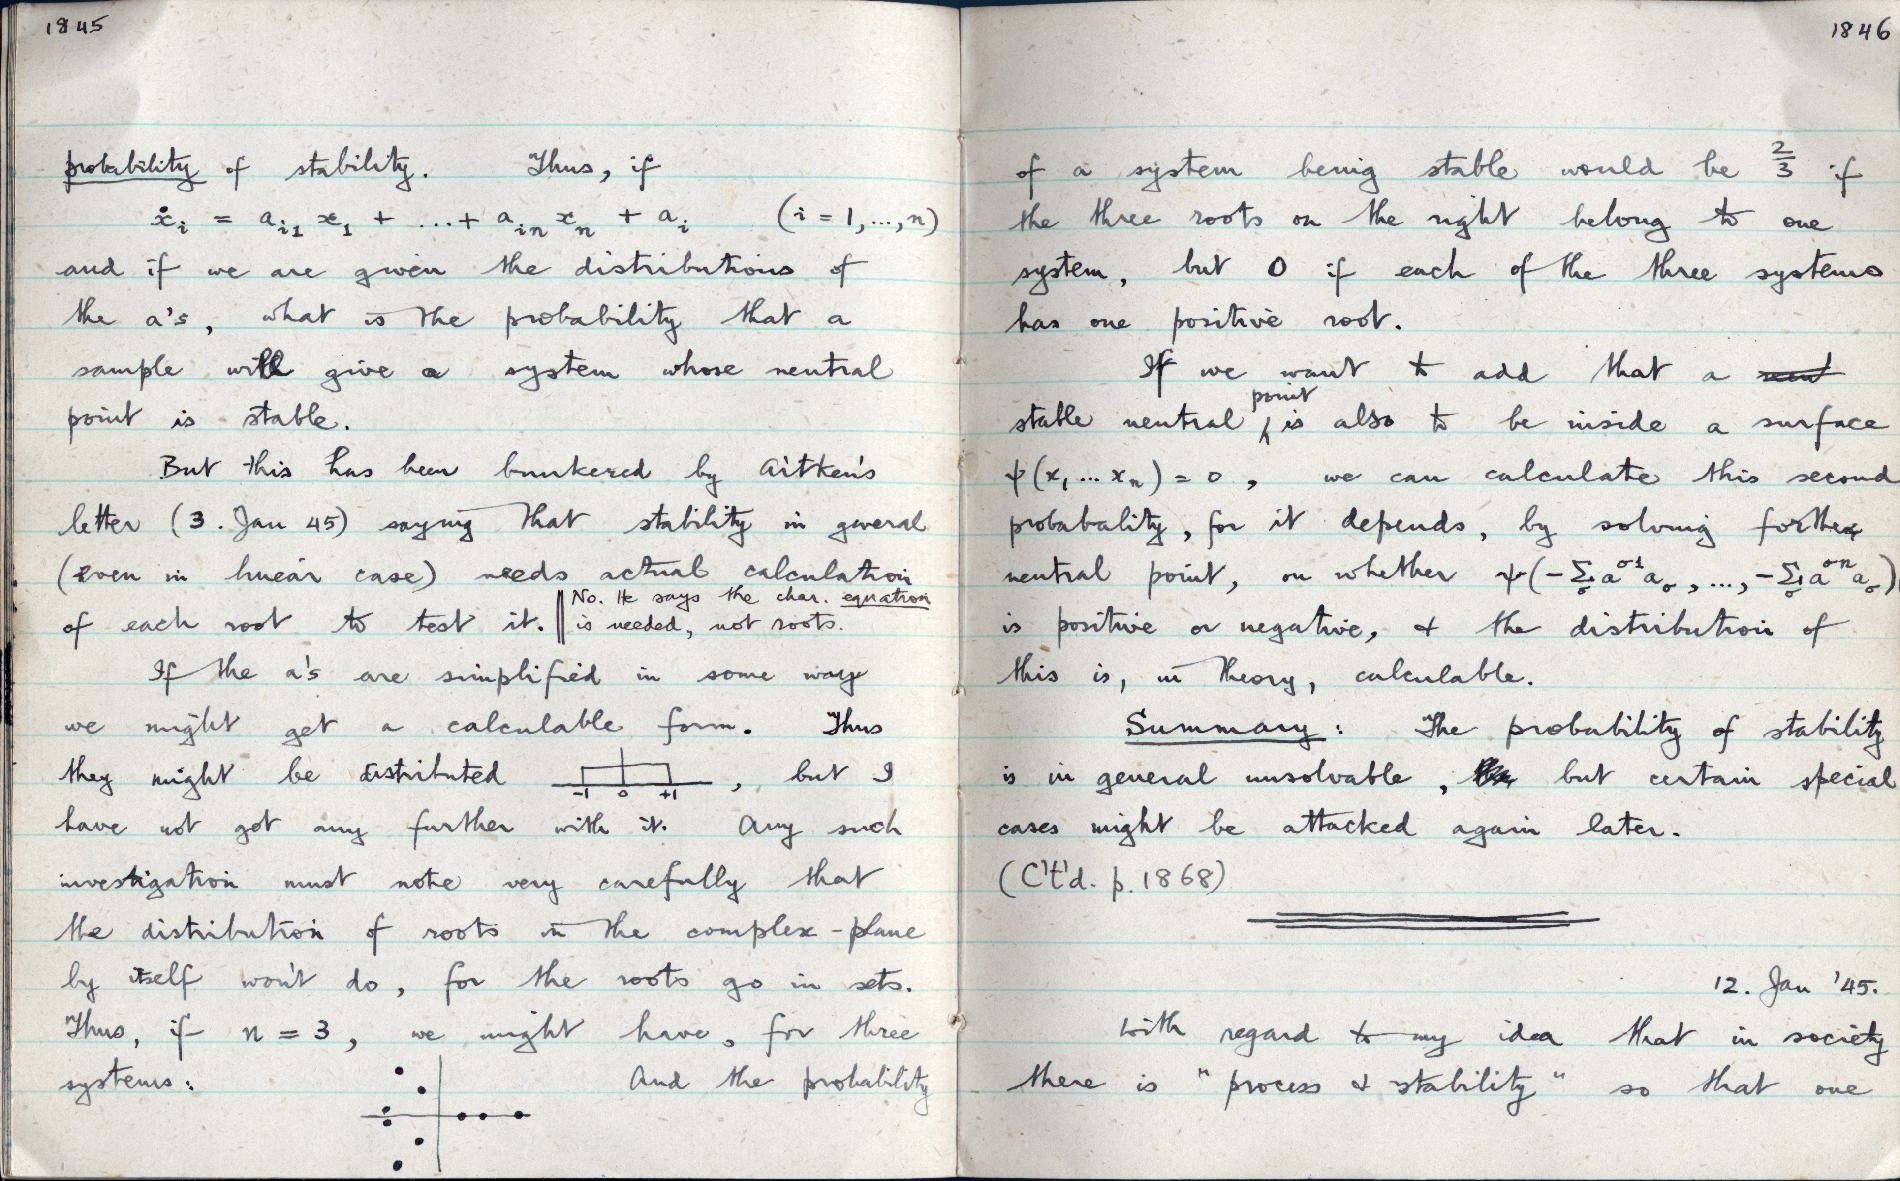 1845
probability of stability. Thus, if
ẋᵢ = aᵢ₁ x₁ + ... + aᵢₙ xₙ + aᵢ (i = 1, ..., n)
and if we are given the distributions of
the a's, what is the probability that a
sample will give a system whose neutral
point is stable.
But this has been bunkered by Aitken's
letter (3. Jan 45) saying that stability in general
(even in linear case) needs actual calculation
of each root to test it. || No. He says the char. equation
is needed, not roots.
If the a's are simplified in some way
we might get a calculable form. Thus
they might be distributed -1 0 +1 , but I
have not got any further with it. Any such
investigation must note very carefully that
the distribution of roots in the complex-plane
by itself won't do, for the roots go in sets.
Thus, if n = 3, we might have, for three
systems: And the probability
1846
of a system being stable would be 2/3 if
the three roots on the right belong to one
system, but 0 if each of the three systems
has one positive root.
If we want to add that a
stable neutral point is also to be inside a surface
ψ(x₁ ... xₙ) = 0, we can calculate this second
probabality, for it depends, by solving for the
neutral point, on whether ψ(-Σ_σ a^σ1 a_σ, ..., -Σ_σ a^σn a_σ)
is positive or negative, & the distribution of
this is, in theory, calculable.
Summary: The probability of stability
is in general unsolvable, but certain special
cases might be attacked again later.
(C't'd. p. 1868)
12. Jan '45.
With regard to my idea that in society
there is "process & stability" so that one